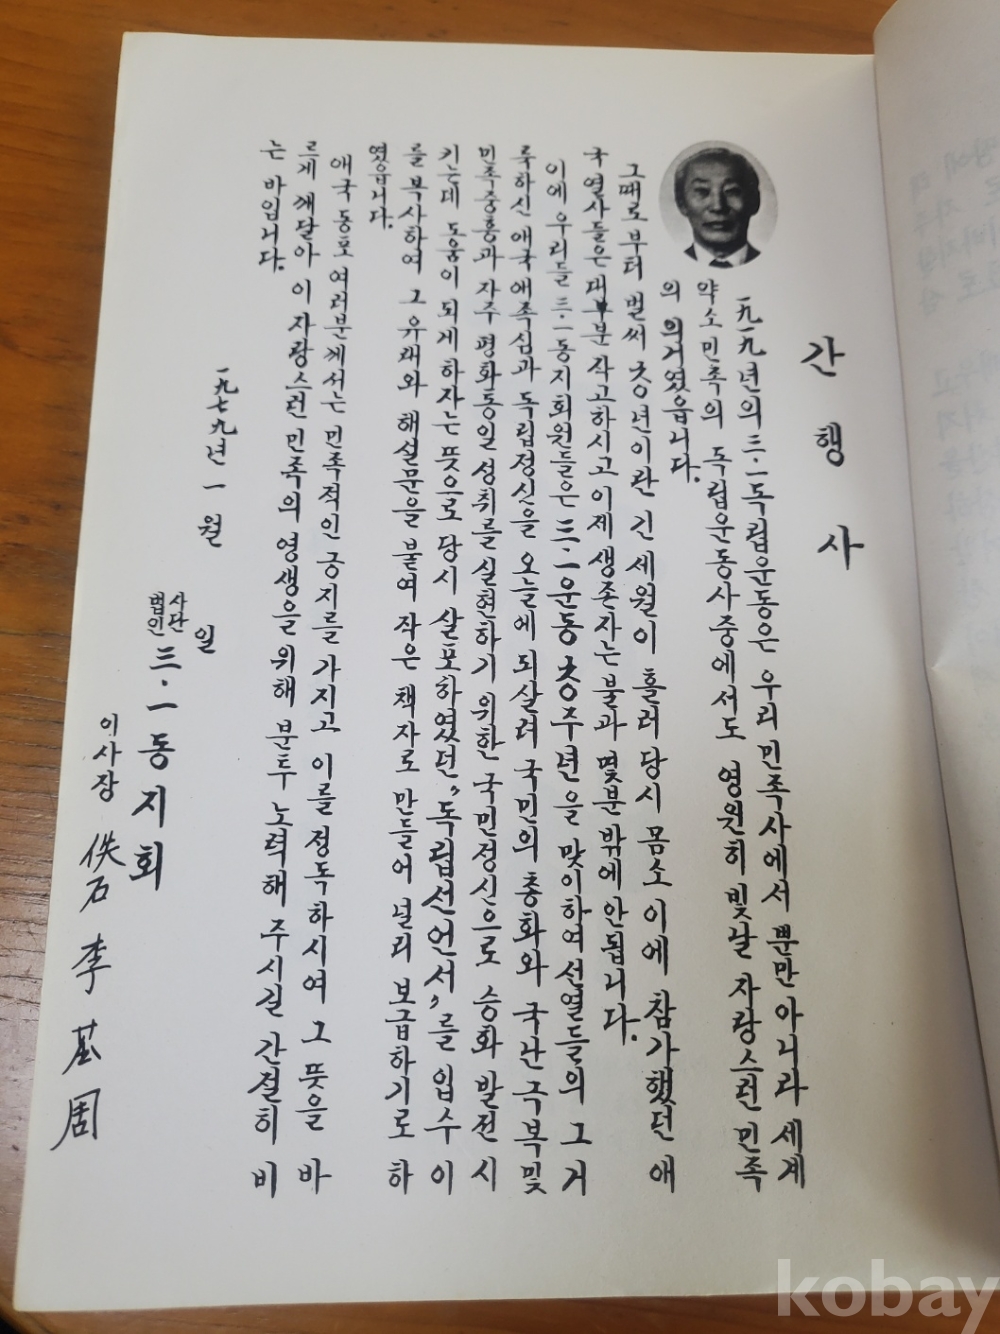 간행사
一九一九년의 三·一독립운동은 우리 민족사에서 뿐만 아니라 세계
약소민족의 독립운동사중에서도 영원히 빛날 자랑스런 민족
의 의거였읍니다.
그때로 부터 벌써 六○년이란 긴 세월이 흘러 당시 몸소 이에 참가했던 애
국열사들은 대부분 작고하시고 이제 생존자는 불과 몇분 밖에 안됩니다.
이에 우리들 三·一동지회원들은 三·一운동 六○주년을 맞이하여 선열들의 그 거
룩하신 애국 애족심과 독립정신을 오늘에 되살려 국민의 총화와 국난 극복및
민족중흥과 자주 평화통일 성취를 실현하기 위한 국민정신으로 승화 발전 시
키는데 도움이 되게 하자는 뜻으로 당시 살포하였던 "독립선언서"를 입수 이
를 복사하여 그 유래와 해설문을 붙여 작은 책자로 만들어 널리 보급하기로 하
였읍니다.
애국 동포 여러분께서는 민족적인 긍지를 가지고 이를 정독하시여 그 뜻을 바
르게 깨달아 이 자랑스런 민족의 영생을 위해 분투 노력해 주시길 간절히 비
는 바입니다.
一九七九년 一월 일
사단
법인 三·一동지회
이사장 佚石 李 周
kobay